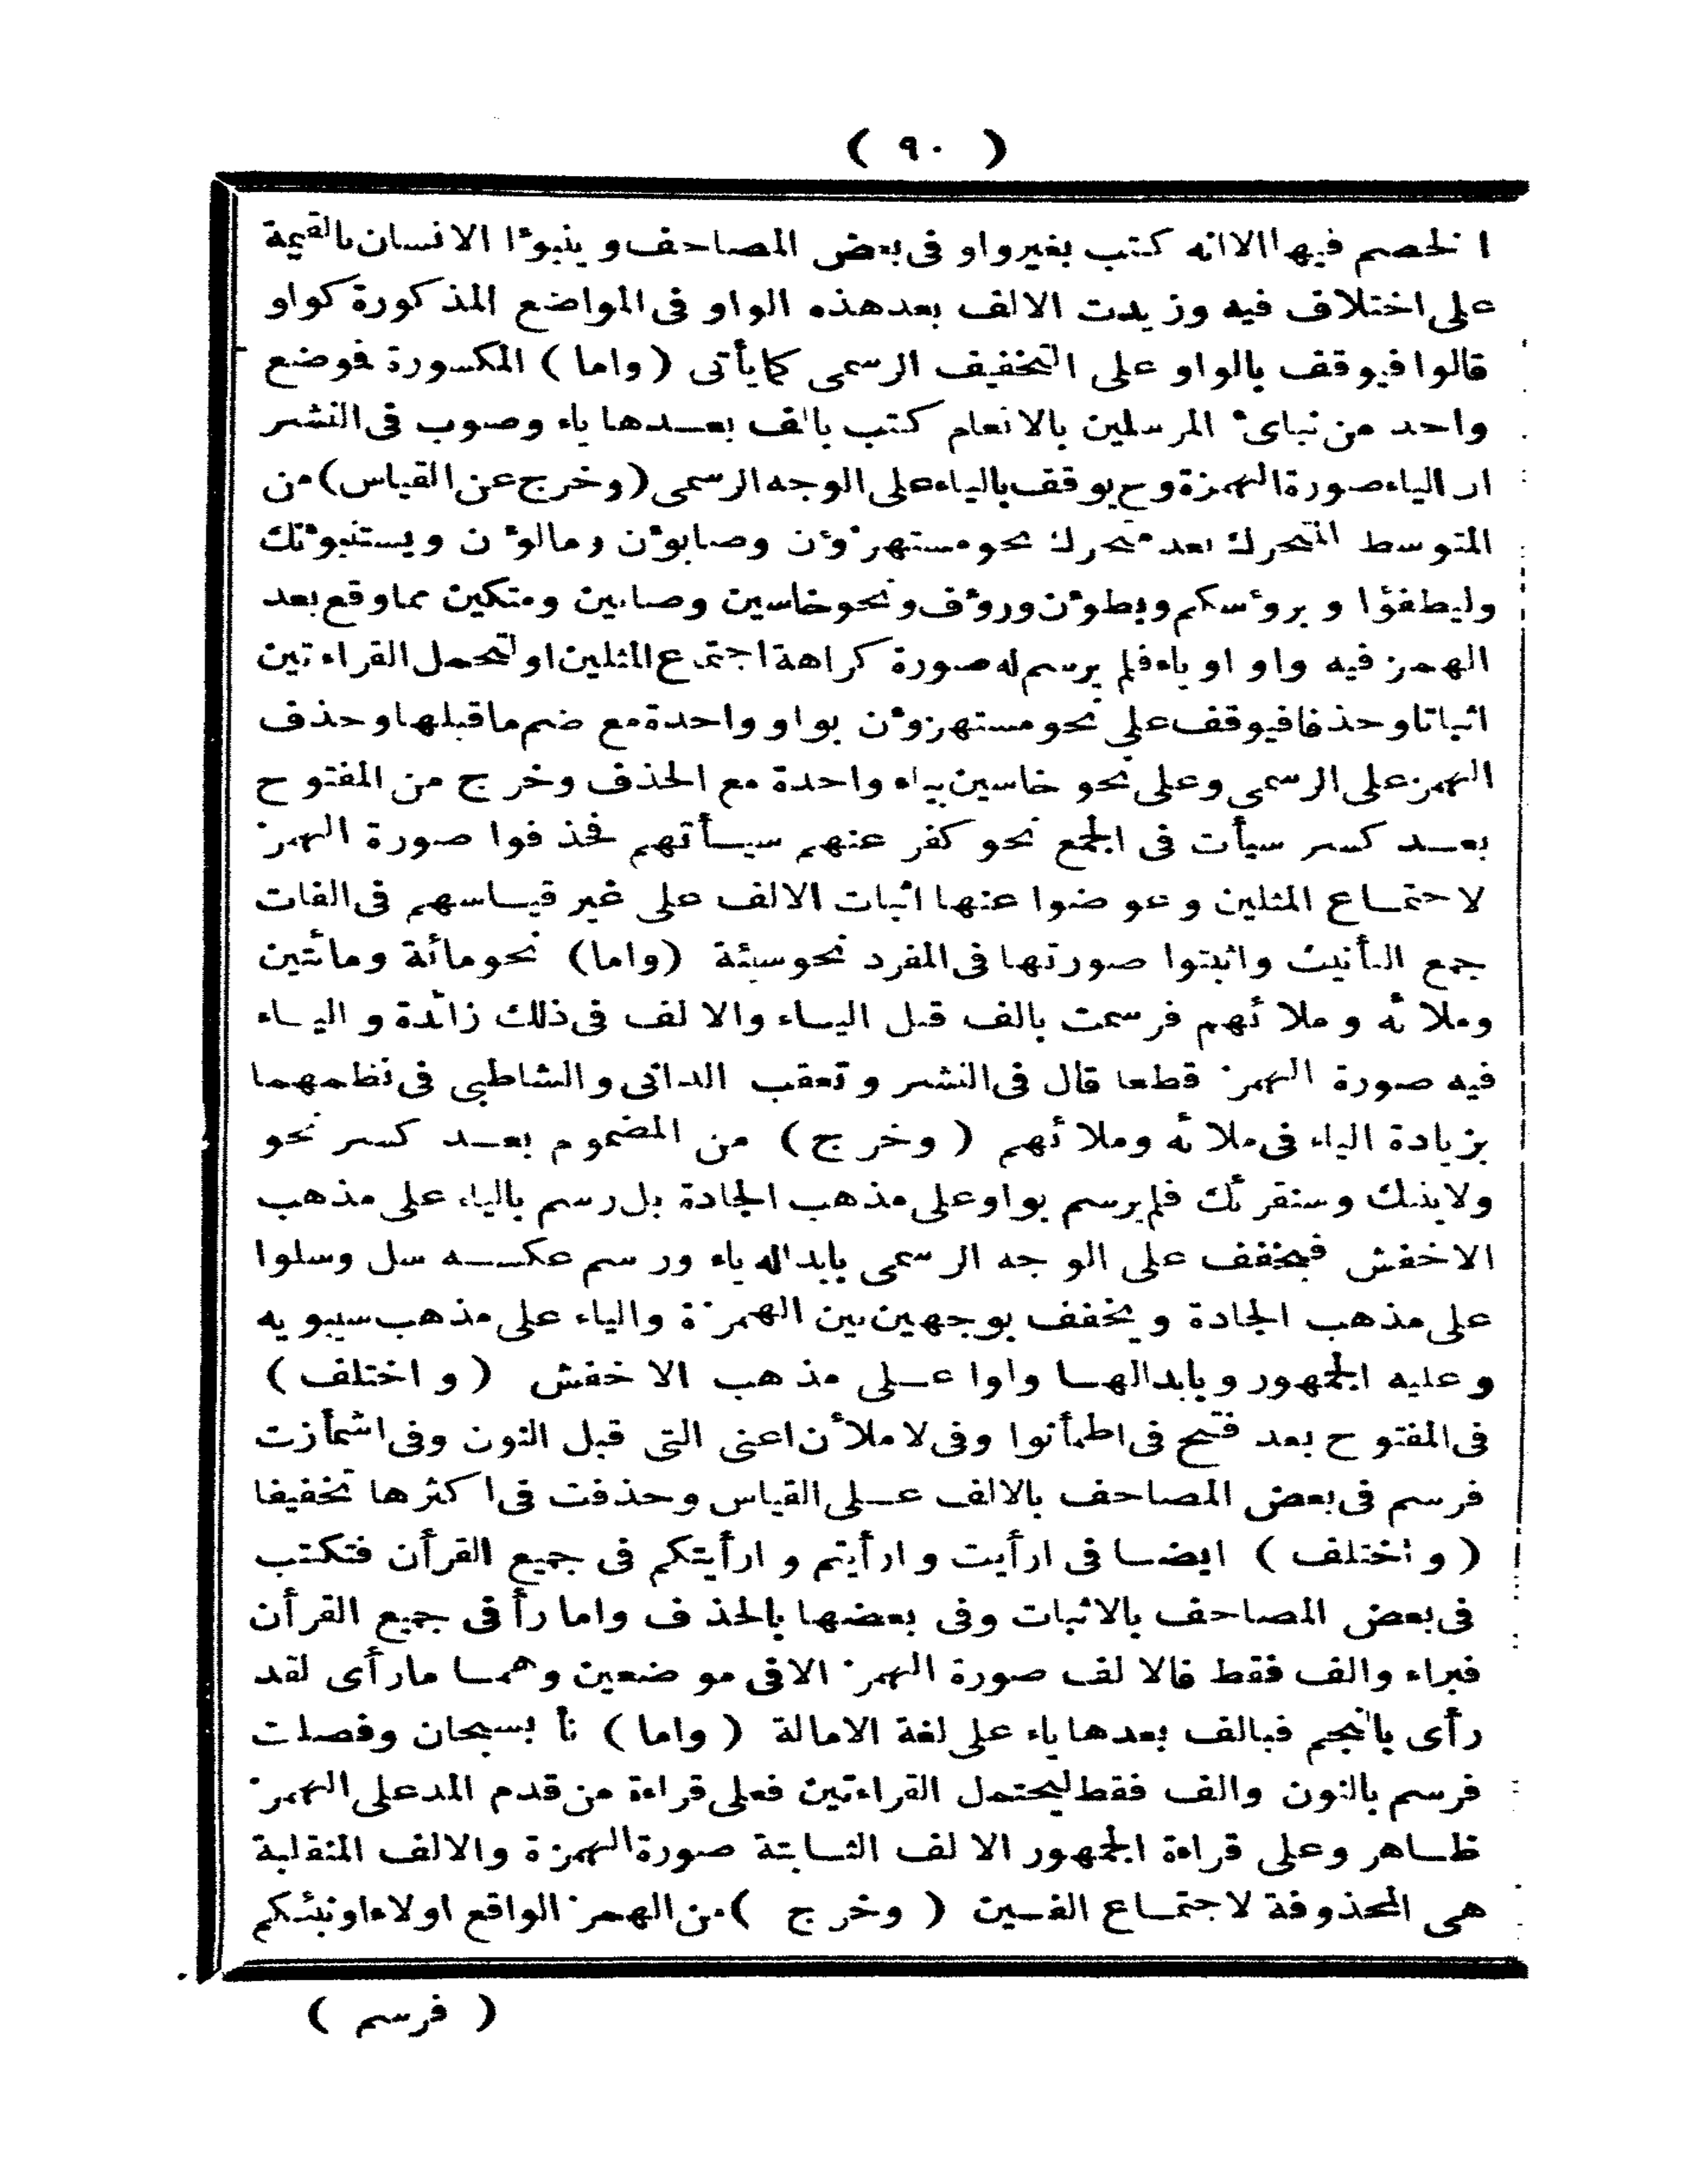 ( ٩٠ )
الخصم فيها الا انه كتب بغير واو فى بعض المصاحف و ينبوءا الانسان بالقيمة
على اختلاف فيه وزيدت الالف بعد هذه الواو فى المواضع المذكورة كواو
قالوا فيوقف بالواو على التخفيف الرسمى كما يأتى ( واما ) المكسورة فموضع
واحد من نباىء المرسلين بالانعام كتب بالف بعدها ياء وصوب فى النشر
ان الياء صورة الهمزة وح يوقف بالياء على الوجه الرسمى ( وخرج عن القياس ) من
المتوسط المتحرك بعد متحرك نحو مستهزؤن وصابوءن ومالوءن ويستنبوءنك
وليطفؤا و بروءسكم ويطوءن وروءف ونحو خاسين وصابين ومتكين مما وقع بعد
الهمز فيه واو او ياء فلم يرسم له صورة كراهة اجتماع المثلين او لتحمل القراءتين
اثباتا وحذفا فيوقف على نحو مستهزوءن بواو واحدة مع ضم ما قبلها وحذف
الهمز على الرسمى وعلى نحو خاسين بياء واحدة مع الحذف وخرج من المفتوح
بعد كسر سيأت فى الجمع نحو كفر عنهم سيأتهم فحذفوا صورة الهمز
لاجتماع المثلين وعوضوا عنها اثبات الالف على غير قياسهم فى الفات
جمع التأنيث واثبتوا صورتها فى المفرد نحو سيئة ( واما ) نحو مائة ومائتين
وملائه وملائهم فرسمت بالف قبل الياء والالف فى ذلك زائدة و الياء
فيه صورة الهمز قطعا قال فى النشر وتعقب الدانى و الشاطبى فى نظمهما
بزيادة الياء فى ملائه وملائهم ( وخرج ) من المضموم بعد كسر نحو
ولاينبئك وسنقرئك فلم يرسم بواو على مذهب الجادة بل رسم بالياء على مذهب
الاخفش فيخفف على الوجه الرسمى بابداله ياء ورسم عكسه سل وسلوا
على مذهب الجادة ويخفف بوجهين بين الهمزة والياء على مذهب سيبويه
وعليه الجمهور وبابدالها واوا على مذهب الاخفش ( واختلف )
فى المفتوح بعد فتح فى اطمأنوا وفى لاملأن اعنى التى قبل النون وفى اشمأزت
فرسم فى بعض المصاحف بالالف على القياس وحذفت فى اكثرها تخفيفا
( واختلف ) ايضا فى ارأيت و ارأيتم و ارأيتكم فى جميع القرأن فتكتب
فى بعض المصاحف بالاثبات وفى بعضها بالحذف واما رأ فى جميع القرأن
فبراء والف فقط فالالف صورة الهمز الا فى موضعين وهما مارأى لقد
رأى بالنجم فبالف بعدها ياء على لغة الامالة ( واما ) نأ بسبحان وفصلت
فرسم بالنون والف فقط ليحتمل القراءتين فعلى قراءة من قدم المد على الهمز
ظاهر وعلى قراءة الجمهور الالف الثابتة صورة الهمزة والالف المنقلبة
هى المحذوفة لاجتماع الفين ( وخرج ) من الهمز الواقع اولاء اونبئكم
( فرسم )